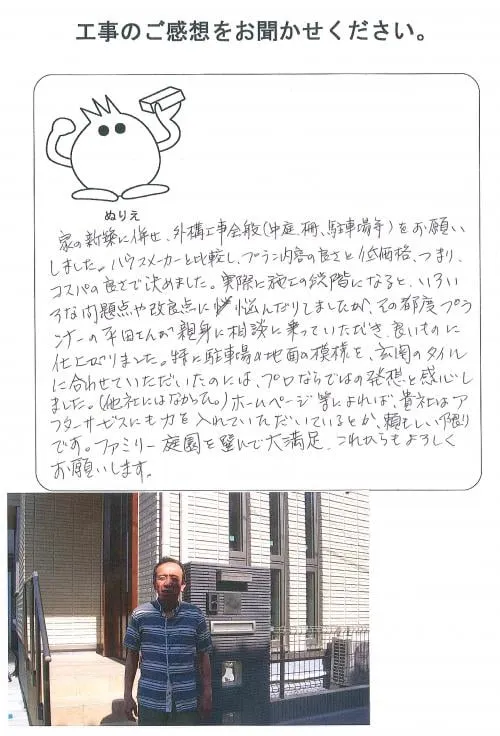 工事のご感想をお聞かせください。
ぬりえ
家の新築に併せ、外構工事全般(中庭、柵、駐車場等)をお願い
しました。ハウスメーカーと比較し、プラン内容の良さと低価格、つまり、
コスパの良さで決めました。実際に施工の段階になると、いろい
ろな問題点や改良点に悩んだりしてましたが、その都度プラ
ンナーの平田さんが親身に相談に乗っていただき、良いものに
仕上がりました。特に駐車場の地面の模様を、玄関のタイル
に合わせていただいたのには、プロならではの発想と感心し
ました。(他社にはなかった。)ホームページ等によれば、貴社はア
フターサービスにも力を入れていただいているとか、頼もしい限り
です。ファミリー庭園を選んで大満足、これからもよろしく
お願いします。